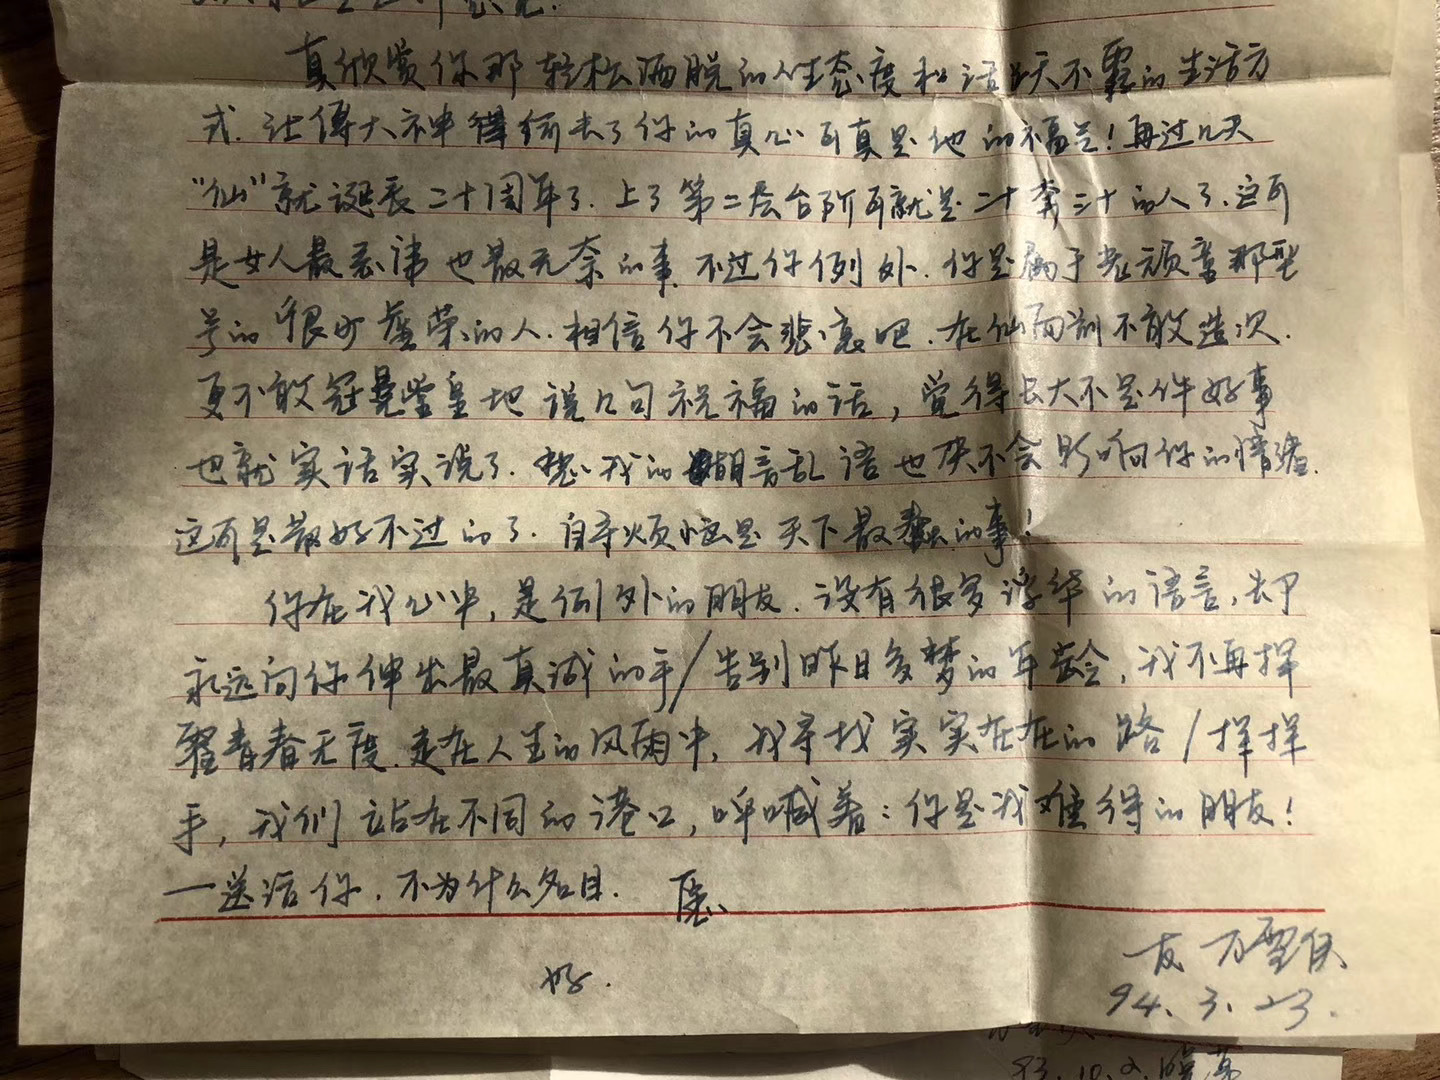 真欣赏你那轻松洒脱的人生态度和活上天不露的生活方
式.让傅大神得去了你的真心可真是他的福兰!再过几天
"仙"就诞辰二十周年了.上了第二层台阶可就是二十奔三十的人了.这可
是女人最忌讳也最无奈的事.不过你例外.你是属于老顽童那型
号的很少虚荣的人.相信你不会悲哀吧.在仙面前不敢造次.
更不敢冠冕堂皇地说几句祝福的话,觉得长大不是件好事
也就实话实说了.想必我的胡言乱语也决不会影响你的情绪.
这可是最好不过的了.自寻烦恼是天下最蠢的事!
你在我心中,是例外的朋友.没有很多浮华的语言,却
永远向你伸出最真诚的手/告别昨日多梦的年龄,我不再挥
霍青春无度.走在人生的风雨中,我寻找实实在在的路/挥挥
手,我们站在不同的港口,呼喊着:你是我难得的朋友!
一送给你.不为什么名目.愿
好.
友
94.3.23.
93.10.2.